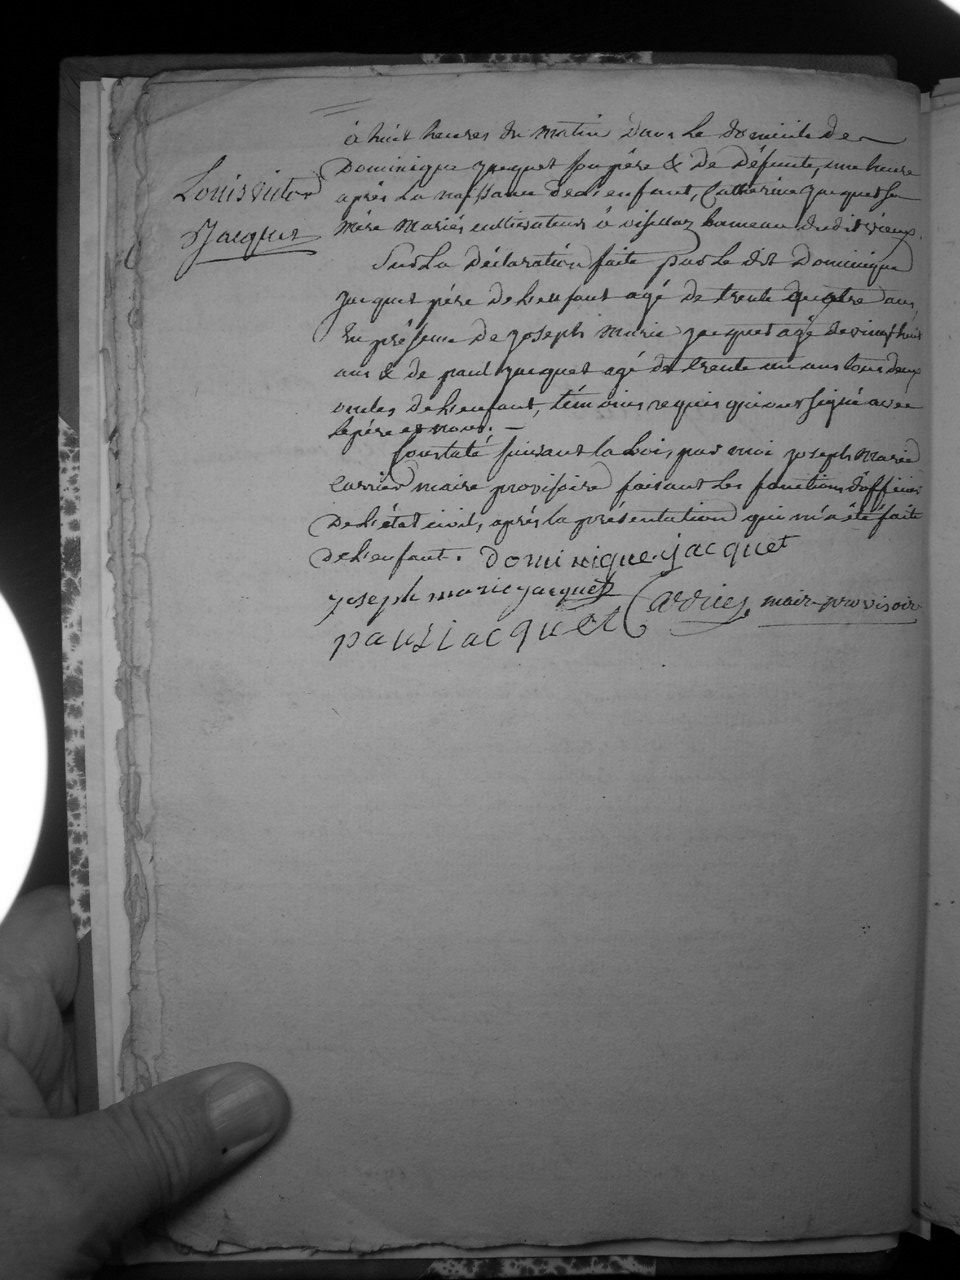 Louis victor
Jacquet
à huit heures du matin dans le domicile de
Dominique jacquet son père & de défunte, une heure
après la naissance de l'enfant, Catherine jacquet sa
mère mariés cultivateurs à hameau dudit vieux.
Sur la déclaration faite par le dit Dominique
jacquet père de l'enfant agé de trente quatre ans,
En présence de joseph marie jacquet agé de vingt huit
ans & de paul jacquet agé de trente un ans tous deux
oncles de l'enfant, témoins requis qui ont signé avec
le père et nous. –
Constaté suivant la loi, par moi joseph marie
Carrier maire provisoire faisant les fonctions d'officier
de l'état civil, après la présentation qui m'a été faite
de l'enfant. dominique jacquet
joseph marie jacquet Carrier, maire provisoir
paul jacquet